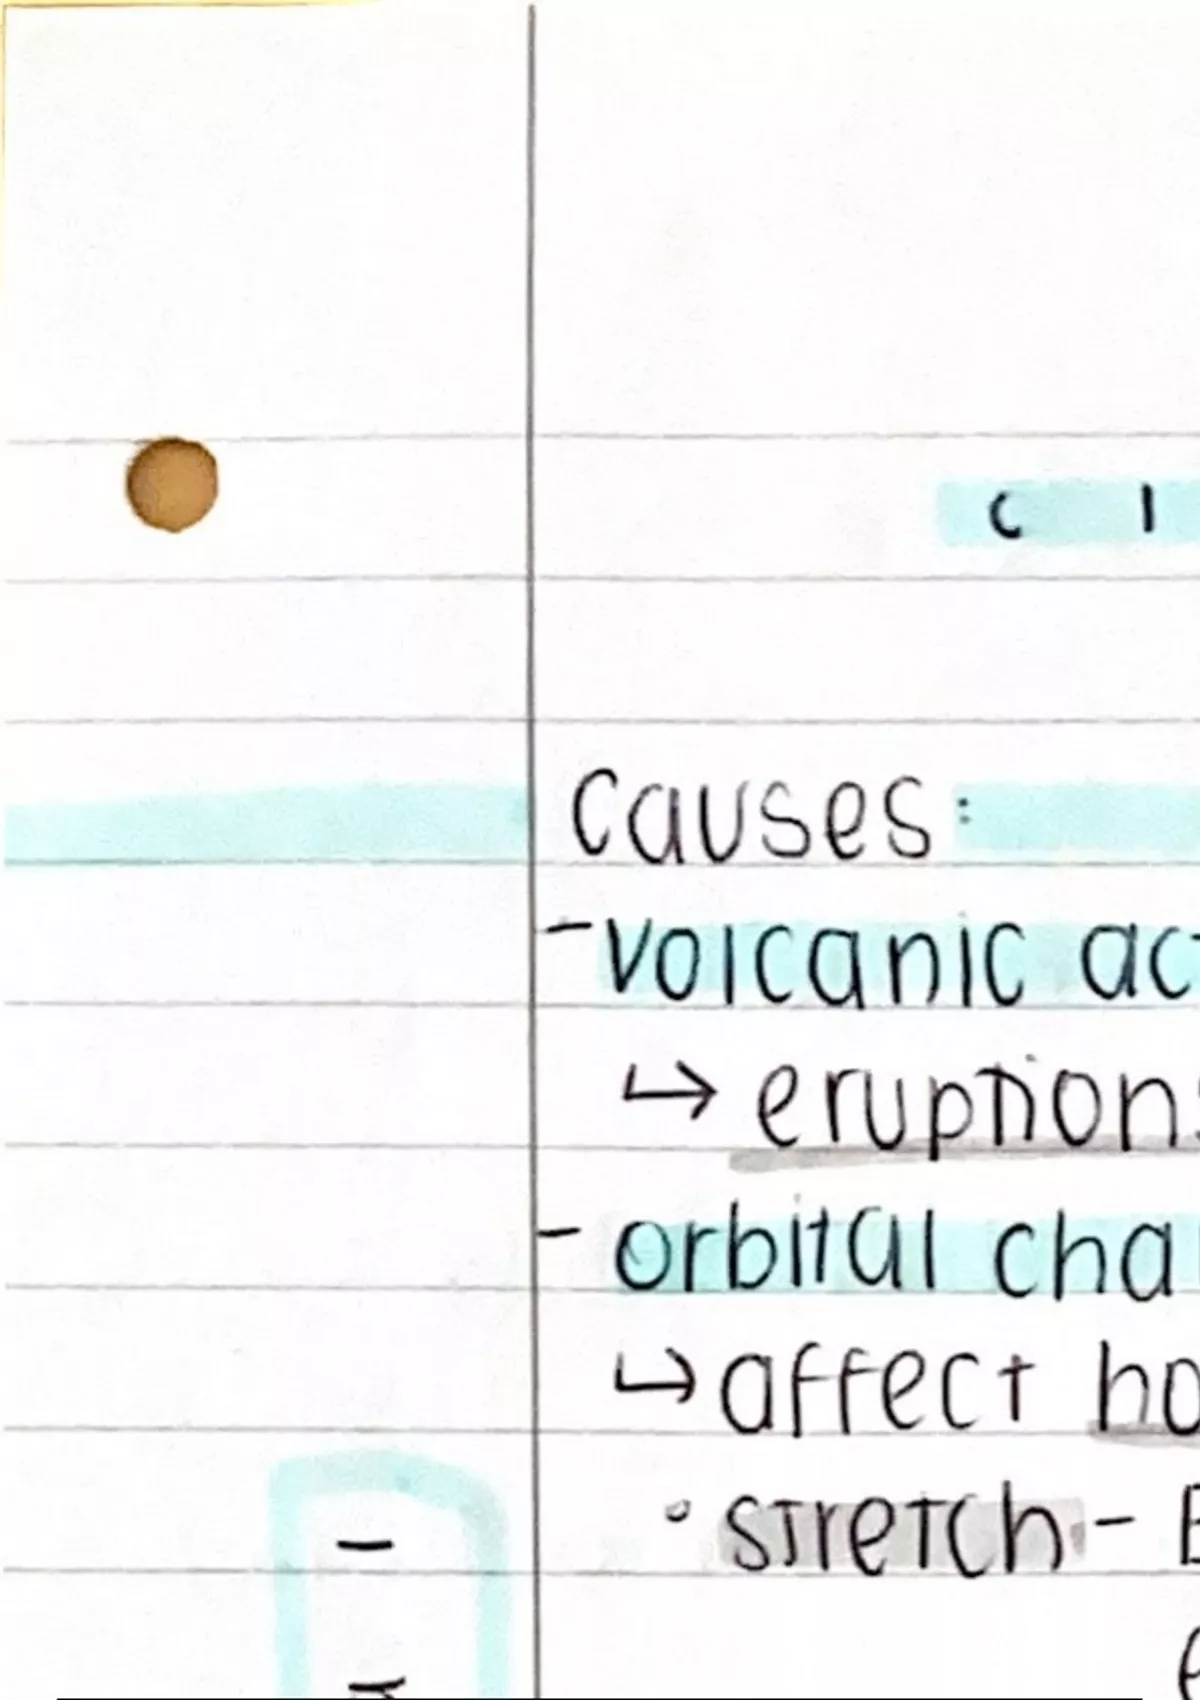 c l
Causes:
- volcanic ac
↳ eruptions
- orbital cha
↳ affect ho
• stretch - E